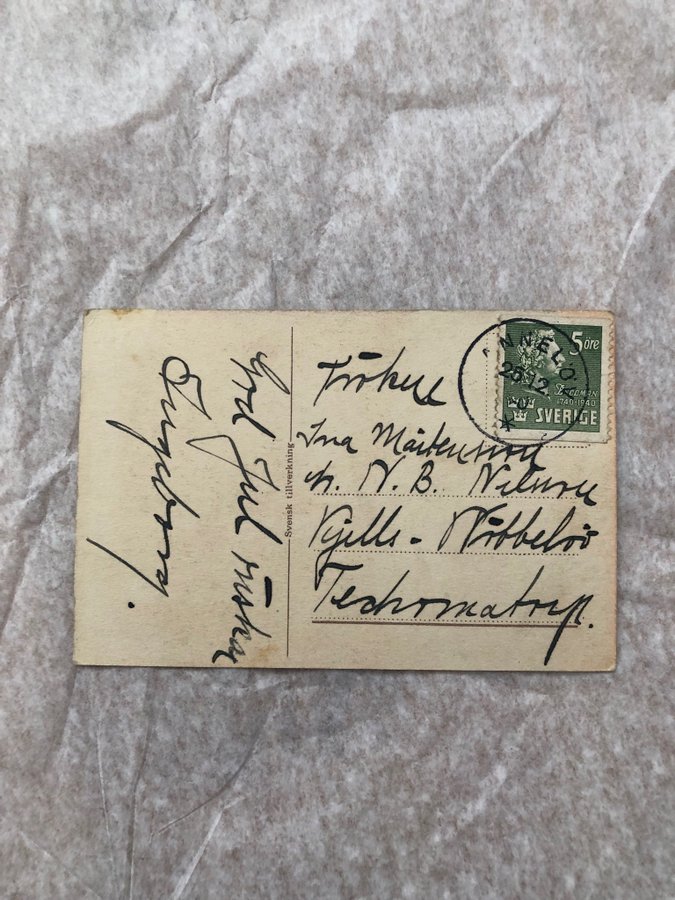 God Jul önskar
Ingeborg.
Svensk tillverkning
Fröken
Ina Mårtensson
N. B. Nilsson
Kjells-Nöbbelöv
Teckomatorp.
ANNELÖV
12
5 öre
BELLMAN
1740-1940
SVERIGE